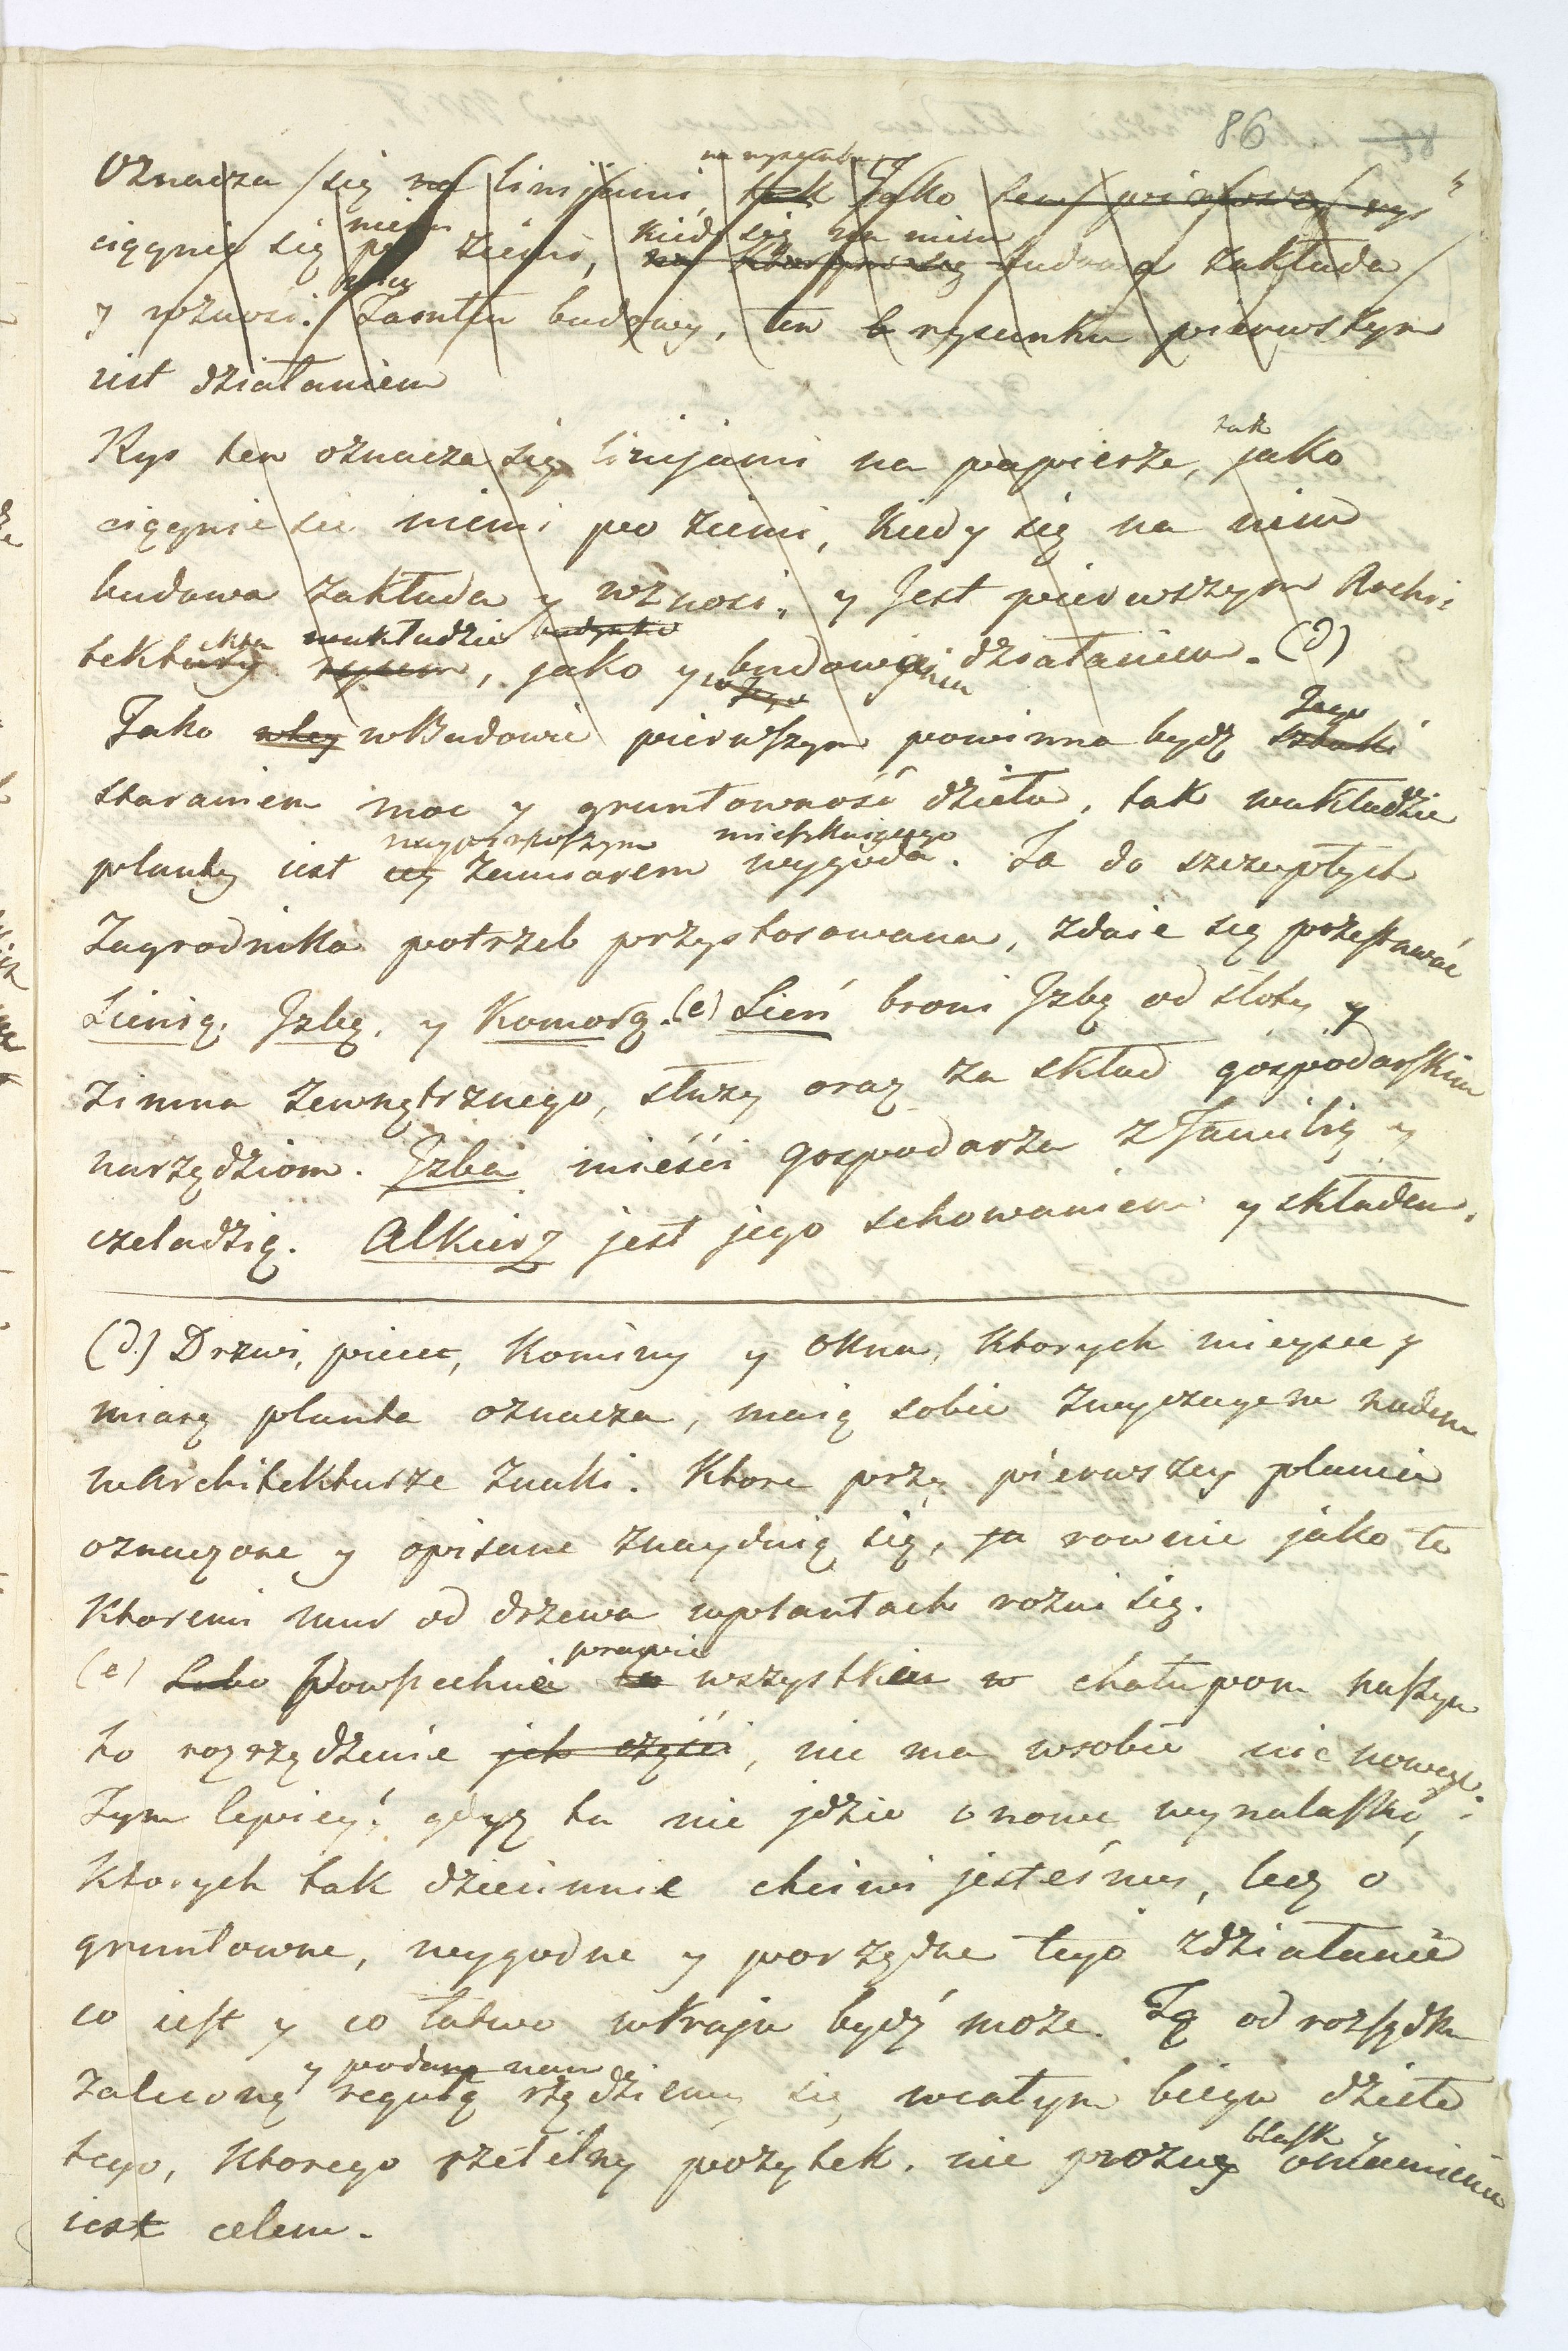 86
na rysunku
Oznacza się na linijami, tak Jako ten pierwszy rys
niemi kiedy się na nim
ciągnie się po ziemi, na którym się budowa zakłada
y wznosi. Tamten budowy, ten rysunku pierwszym
iest działaniem
tak
Rys ten oznacza się linijami na papierze, jako
ciągnie sie niemi po ziemi, Kiedy się na nim
budowa zakłada y wznosi, y Jest pierwszym Archi-
wukładzie budynku
tektury rysem, jako y budowania działaniem. (d)
Jego
Jako wBudowie pierwszym powinna bydź sztuki
staraniem moc y gruntowność dzieła, tak wukładzie
naypierwszym mieszkaiącego
planty iest iey zamiarem wygoda. Ta do szczupłych
Zagrodnika potrzeb przystosowana, zdaie się przestawać
Sienią, Jzbą, y Komorą. (e) Sień broni Jzbę od słoty y
zimna zewnętrznego, służy oraz za skład gospodarskim
narzędziom. Jzba mieści gospodarza z Familią y
czeladzią. Alkierz jest jego schowaniem y składem.
(d.) Drzwi, piece, Kominy y Okna, Ktorych mieysce y
miarę planta oznacza, maią sobie zwyczayne nadane
wArchitekturze znaki. Ktore przy pierwszey plancie
oznaczone y opisane znayduią się, rownie jako te
Ktoremi mur od drzewa wplantach rożni się.
prawie
(e) Lubo Powszechne wszystkim chałupom naszym
to rozrządzenie ich części, nie ma wsobie nic nowego.
Tym lepiey! gdyż tu nie jdzie o nowe wynalaski,
Ktorych tak dziecinnie chciwi jesteśmy, lecz o
gruntowne, wygodne y porządne tego zdziałanie
co iest y co łatwo wKraju bydź może. Tą od rozsądku
y podaną nam
zaleconą regułą rządziemy się wcałym biegu dzieła
blask y
tego, Ktorego rzetelny pożytek, nie prożny omamienie
iest celem.